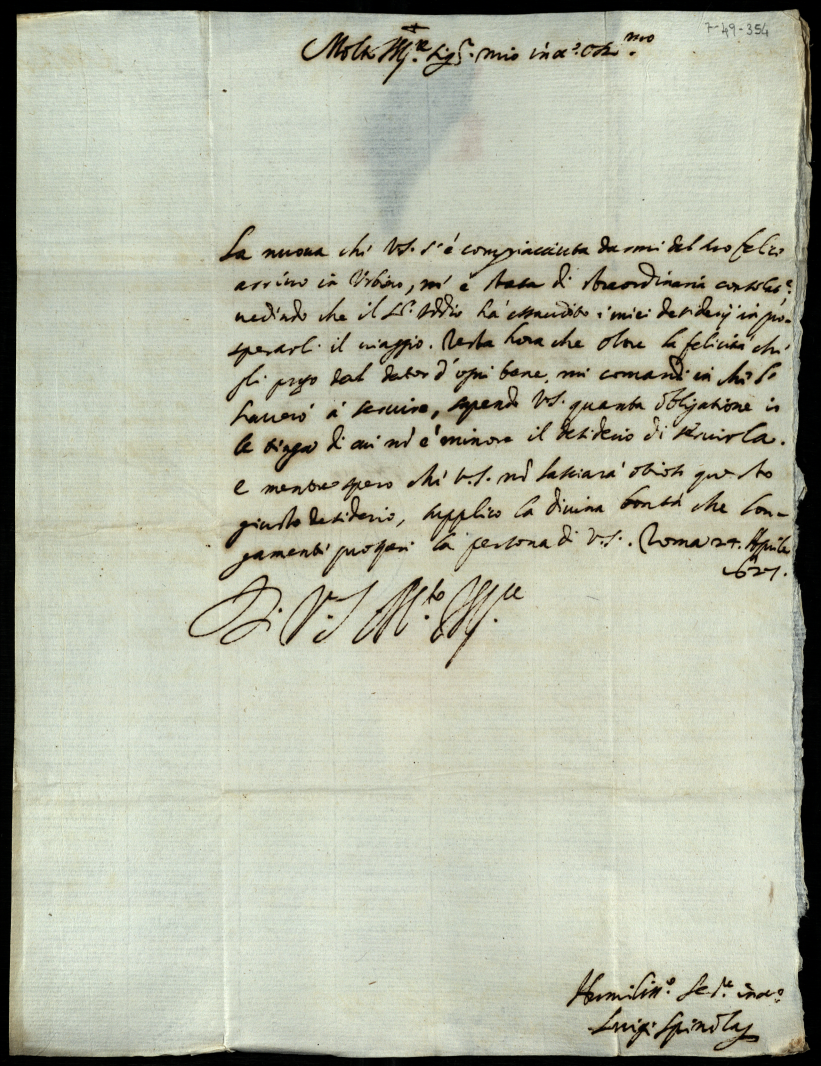 7-49-354
Molto Ill.re Sig.r mio in Oss.mo
La nuova che V.S. s'é compiacciuta darmi del suo felice
arrivo in Urbino, m'é stata di straordinaria consolat.e
vedendo che il Sig.r Iddio há essaudito i miei desiderij in pro-
sperarli il viaggio. Resta hora che oltre la felicitá che
gli prego dal dator d'ogni bene, mi comandi in che l'
haveró á servire, sapendo V.S. quanta obligatione io
le tengo di cui nō é minore il desiderio di servirla.
e mentre spero che V.S. nō lasciará otioso questo
giusto desiderio, supplico la divina bontá che lon-
gamente prosperi la persona di V.S. Roma 24. Aprile
1627.
Di V.S. M.to Ill.re
Humiliss.o Se.re
Luigi Spinola